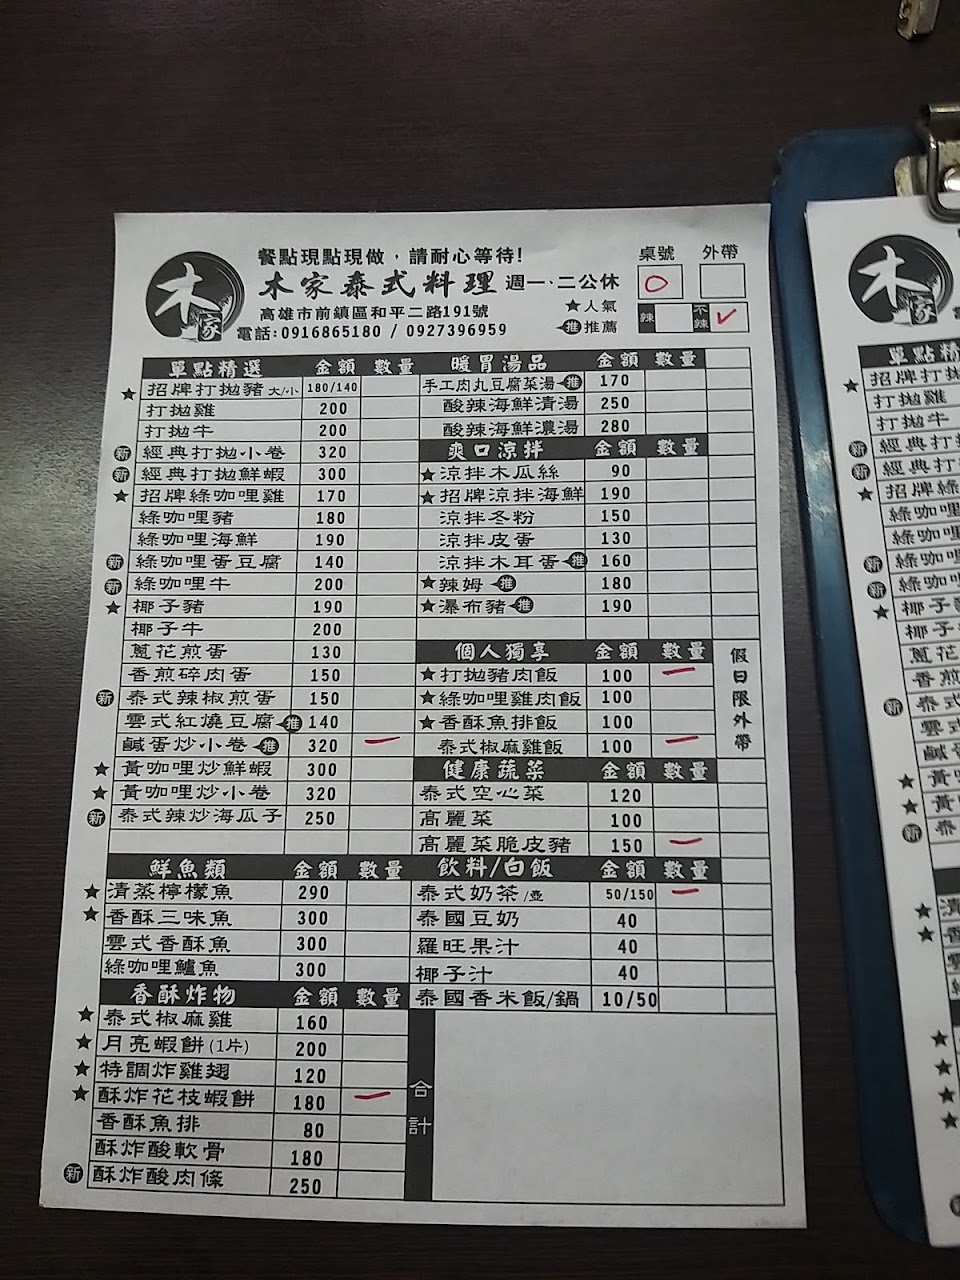 餐點現點現做，請耐心等待!
木家
木家泰式料理 週一·二公休
桌號 外帶
高雄市前鎮區和平二路191號
電話:0916865180 / 0927396959
★人氣
推 推薦
辣 不辣
單點精選 金額 數量
★ 招牌打拋豬 大/小 180/140
打拋雞 200
打拋牛 200
新 經典打拋小卷 320
新 經典打拋鮮蝦 300
★ 招牌綠咖哩雞 170
綠咖哩豬 180
綠咖哩海鮮 190
新 綠咖哩蛋豆腐 140
新 綠咖哩牛 200
★ 椰子豬 190
椰子牛 200
蔥花煎蛋 130
香煎碎肉蛋 150
新 泰式辣椒煎蛋 150
雲式紅燒豆腐 推 140
鹹蛋炒小卷 推 320 一
★ 黃咖哩炒鮮蝦 300
★ 黃咖哩炒小卷 320
新 泰式辣炒海瓜子 250
鮮魚類 金額 數量
★ 清蒸檸檬魚 290
★ 香酥三味魚 300
雲式香酥魚 300
綠咖哩鱸魚 300
香酥炸物 金額 數量
★ 泰式椒麻雞 160
★ 月亮蝦餅(1片) 200
★ 特調炸雞翅 120
★ 酥炸花枝蝦餅 180 一
香酥魚排 80
酥炸酸軟骨 180
新 酥炸酸肉條 250
暖胃湯品 金額 數量
手工肉丸豆腐菜湯 推 170
酸辣海鮮清湯 250
酸辣海鮮濃湯 280
爽口涼拌 金額 數量
★涼拌木瓜絲 90
★招牌涼拌海鮮 190
涼拌冬粉 150
涼拌皮蛋 130
涼拌木耳蛋 推 160
★辣姆 推 180
★瀑布豬 推 190
個人獨享 金額 數量
★打拋豬肉飯 100 一
★綠咖哩雞肉飯 100
★香酥魚排飯 100
泰式椒麻雞飯 100 一
假日限外帶
健康蔬菜 金額 數量
泰式空心菜 120
高麗菜 100
高麗菜脆皮豬 150 一
飲料/白飯 金額 數量
泰式奶茶/壺 50/150 一
泰國豆奶 40
羅旺果汁 40
椰子汁 40
泰國香米飯/鍋 10/50
合計
木家
單點精選
★ 招牌打拋
打拋雞
打拋牛
新 經典打
新 經典打
★ 招牌綠
綠咖哩
綠咖哩
新 綠咖
新 綠咖
★ 椰子
椰子
蔥花
香煎
新 泰式
雲式
鹹蛋
★ 黃咖
★ 黃
新 泰
★ 清
★ 香
★
★
★
★